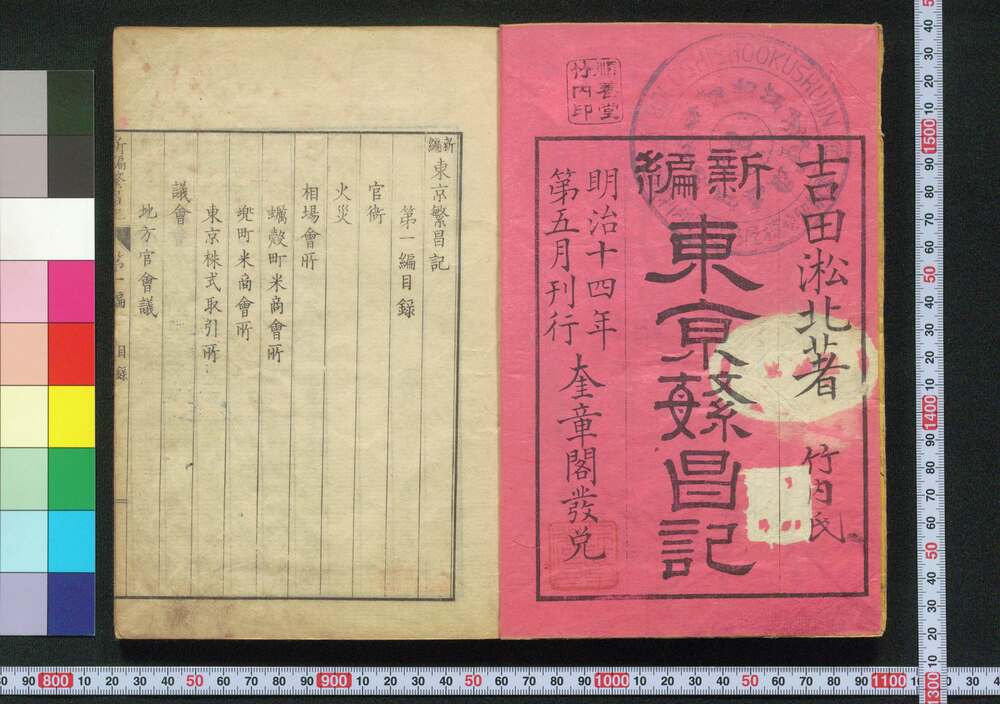 吉田淞北著
竹内氏
新編
東京繁昌記
明治十四年
第五月刊行
奎章閣發兌
順養堂
竹内印
新編東京繁昌記
第一編目錄
官衙
火災
相場會所
蠣殻町米商會所
兜町米商會所
東京株式取引所
議會
地方官會議
第一編
目錄